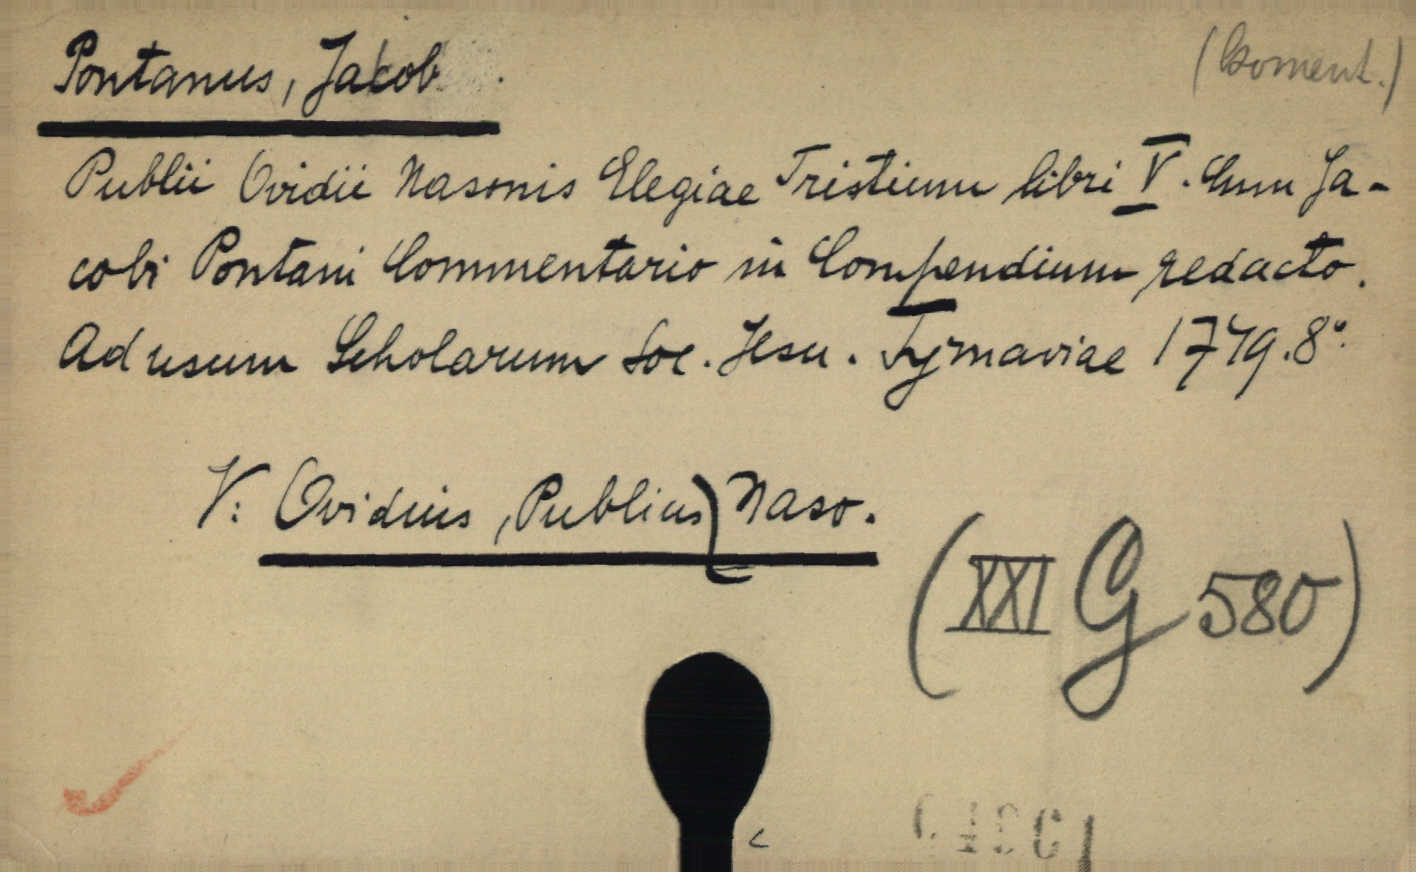 Pontanus, Jakob.
(Coment.)
Publii Ovidii Nasonis Elegiae Tristium libri V. Cum Ja-
cobi Pontani Commentario in Compendium redacto.
Ad usum Scholarum Soc. Jesu. Tyrnaviae 1749. 8°.
V: Ovidius, Publius Naso.
(XXI G 580)